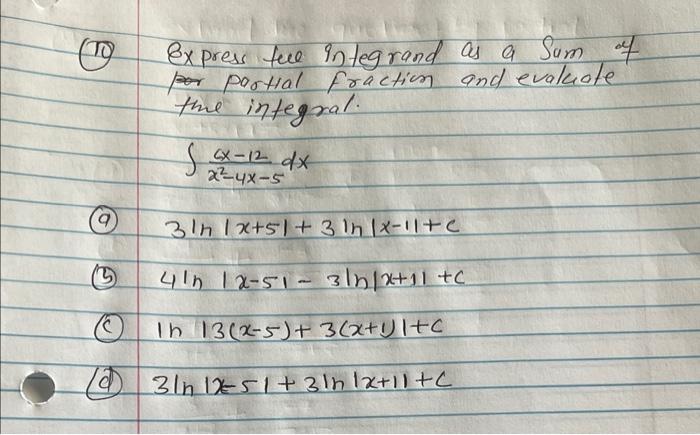 (10) Express the integrand as a Sum of
partial fraction and evaluate
the integral.
∫ 6x-12 / x²-4x-5 dx
(a) 3ln|x+5|+3ln|x-1|+c
(b) 4ln|x-5|-3ln|x+1|+c
(c) ln|3(x-5)+3(x+1)|+c
(d) 3ln|x-5|+3ln|x+1|+c